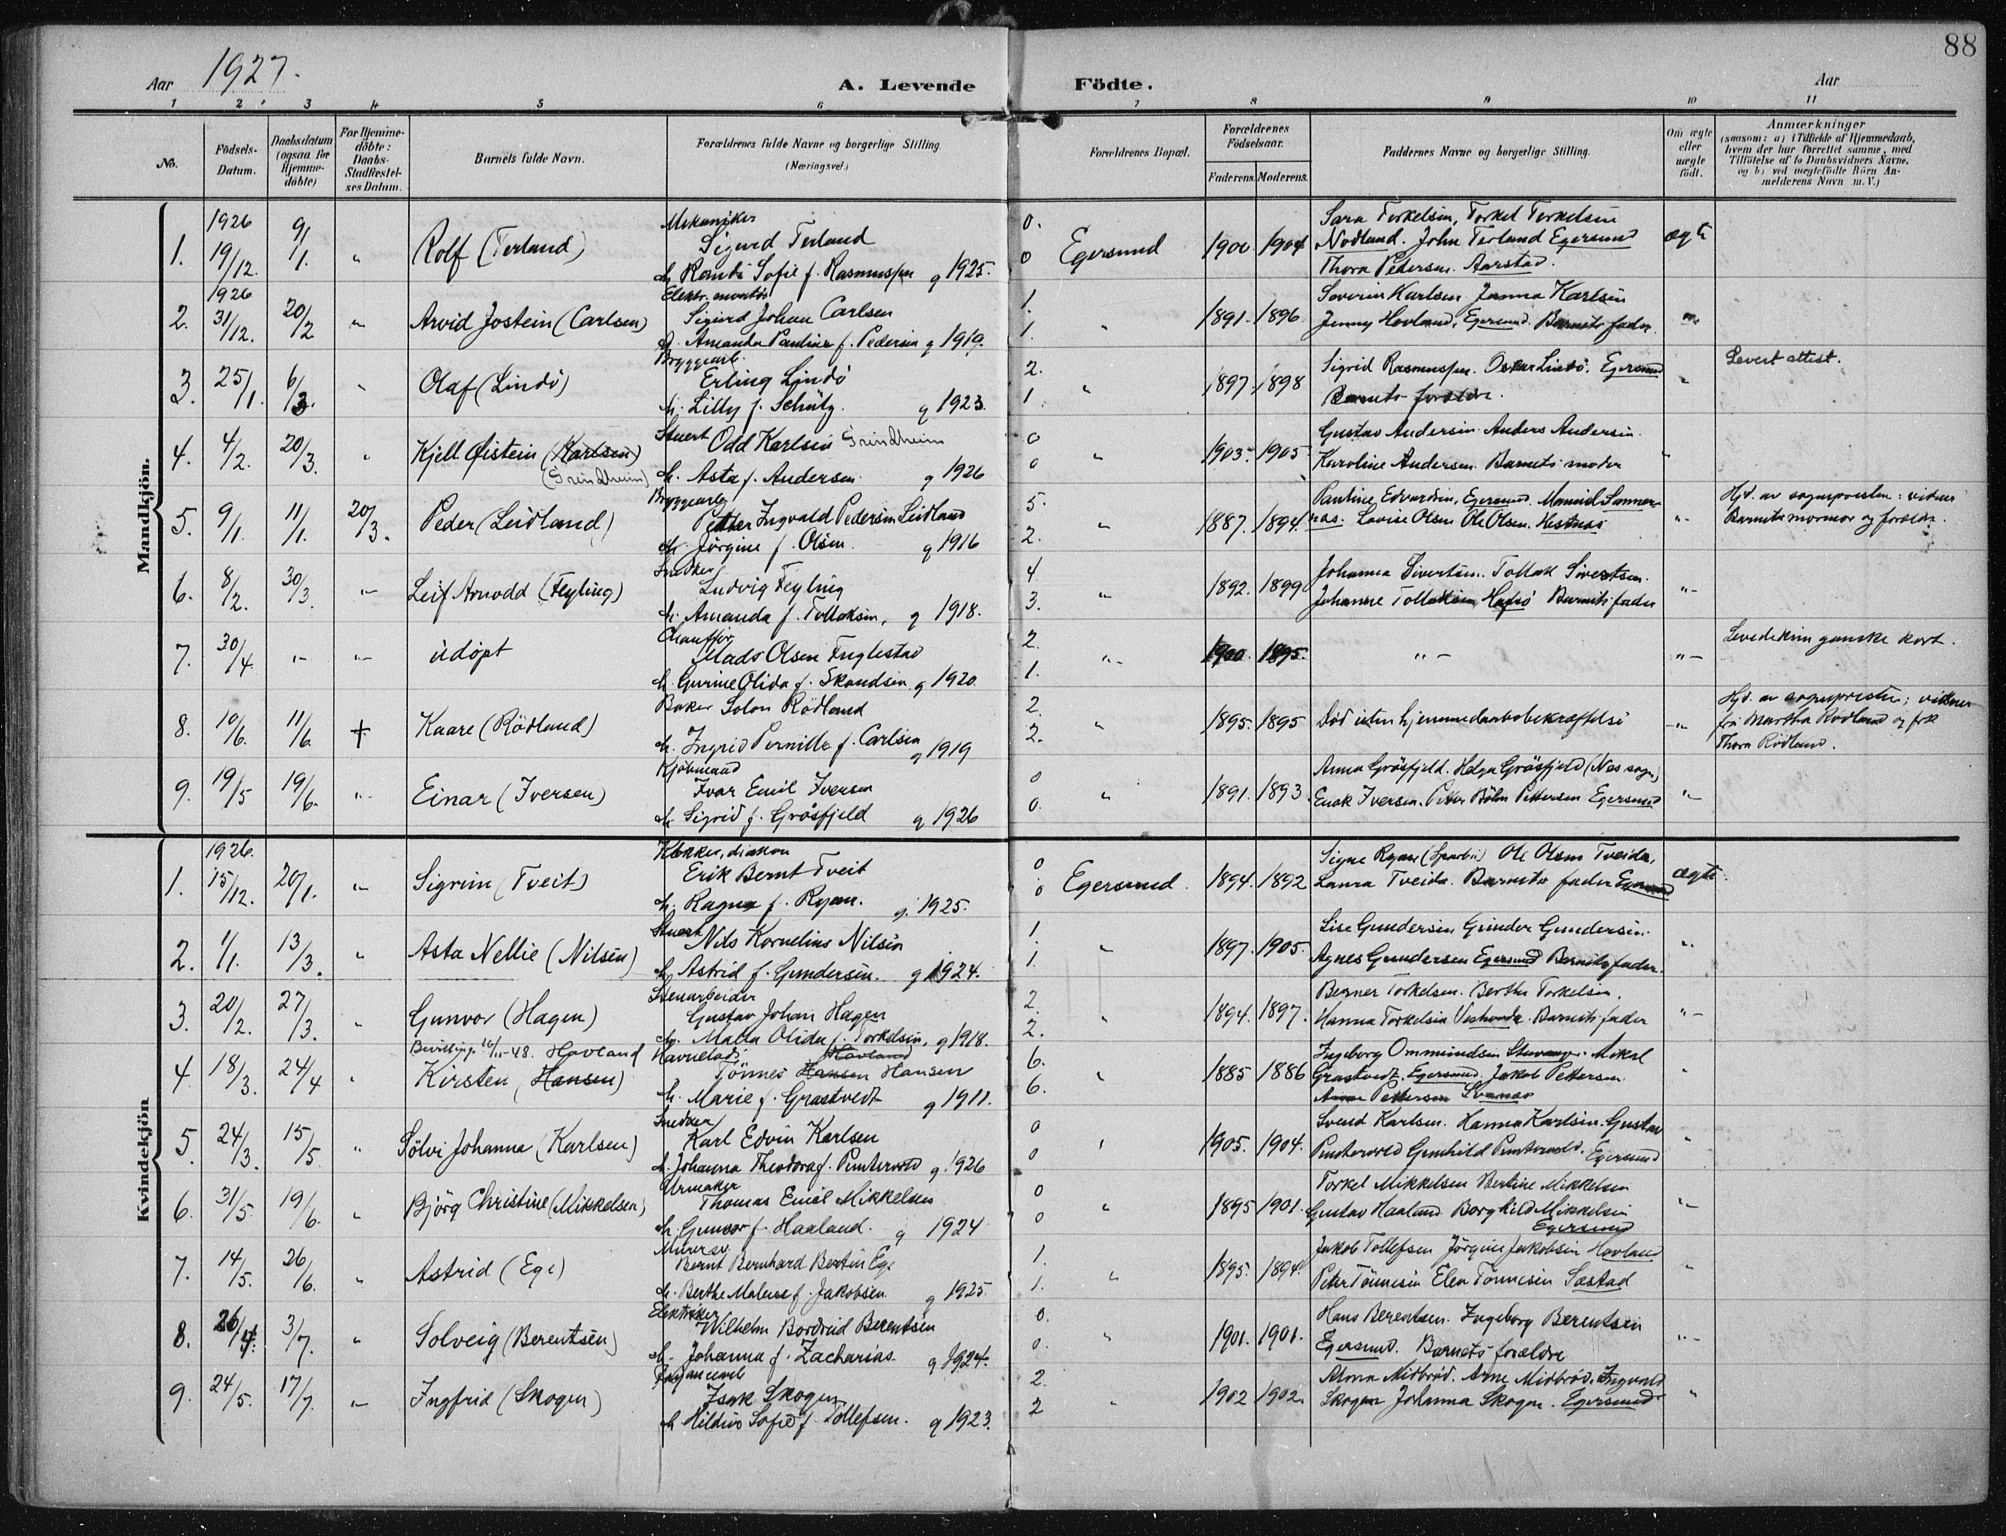 88
Aar 1927. A. Levende Födte. Aar
1 2 3 4 5 6 7 8 9 10 11
No. Födsels-Datum. Daabsdatum (ogsaa for Hjemmedöbte) For Hjemmedöbte: Daabs-Stadfestelses Datum. Barnets fulde Navn. Forældrenes fulde Navne og borgerlige Stilling (Næringsvei.) Forældrenes Bopæl. Forældrenes Födselsaar. Faderens. Moderens. Faddernes Navne og borgerlige Stilling. Om ægte eller uægte födt. Anmærkninger (saasom: a) i Tilfælde af Hjemmedaab, hvem der har forrettet samme, med Tilföielse af to Daabsvidners Navne. og b) ved uægtefödte Börn Anmelderens Navn m. V.)
Mandkjön.
1926 9/1 Mekaniker 0. Sara Torkelsen, Torkel Torkelsen
1. 19/12. Rolf (Terland) Sigurd Terland 0 Egersund 1900. 1904 Nodland. John Terland Egersund ægte
h. Randi Sofie f. Rasmussen g 1925. Thora Pedersen. Aarstad.
1926 Elektr. montör 1. Severin Karlsen Janna Karlsen
2. 31/12. 20/2 Arvid Jostein (Carlsen) Sigurd Johan Carlsen 1. 1891. 1896. Jenny Hovland, Egersund. Barnets fader.
h. Amanda Pauline f. Pedersen g 1919.
Bryggearb. 2. Sigrid Rasmussen. Oskar Lindö. Egersund Levert attest.
3. 25/1. 6/3. Olaf (Lindö) Erling Lindö 1. 1897. 1898 Barnets foreldre.
h. Lilly f. Schütz. g 1923.
Stuert Odd Karlsen Grindheim 0 Gustav Andersen. Anders Andersen.
4. 4/2. 20/3. Kjell Øistein (Karlsen) (Grindheim) h. Asta f. Andersen g 1926 0 1903. 1905 Karoline Andersen. Barnets moder
Bryggearb. 5. Pauline Edvardsen, Egersund. Hjd. av sognepresten: vidner
5. 9/1. 11/1. 20/3. Peder (Leidland) Petter Ingvald Pedersen Leidland 2. 1887. 1894. Lovise Olsen Ole Olsen. Hestnes Barnets mormor og foreldr.
h. Jörgine f. Olsen. g 1916
Snekker 4. Johanna Sivertsen. Tollak Sivertsen.
6. 8/2. 30/3. Leif Arnodd (Feyling) Ludvig Feyling 3. 1892. 1899 Johanne Tollaksen Barnets fader
h. Amanda f. Tollaksen, g 1918.
Chaufför 2. Levde kun ganske kort.
7. 30/4. udöpt Mads Olsen Fuglestad 1. 1900. 1895.
h. Gurine Olida f. Skandsen g 1920.
Baker Solon Rödland 2. Hjd. av sogneprester; vidner
8. 10/6. 11/6. + Kaare (Rödland) h. Ingrid Pernille f. Carlsen g 1919 2. 1895. 1895 Död uten hjemmedaabsbekræftelse frk Martha Rödland og frk Thora Rödland.
Kjöbmand 0 Anna Gråsfjeld. Helga Gråsfjeld (Nes sogn)
9. 19/5 19/6. Einar (Iversen) Ivar Emil Iversen 0. 1891. 1893. Enok Iversen. Petter Böhn Pettersen Egersund
h. Sigrid f. Gråsfjeld g 1926
Kvindekjön
1926. Klokker, diakon 0 Signe Ryen Ole Olsen Tveida,
1. 15/12. 20/1. Sigrun (Tveit) Erik Bernt Tveit 0 Egersund. 1894. 1892 Laura Tveida. Barnets fader Egersund ægte.
h. Ragna f. Ryen. g. 1925.
Stuert 1. Lise Gundersen Gunder Gundersen.
2. 1/1. 13/3. Asta Nellie (Nilsen) Nils Kornelius Nilsen 1. 1897. 1905. Agnes Gundersen Egersund Barnets fader.
h. Astrid f. Gundersen. g 1924.
Stenarbeider 2. Berner Torkelsen. Berthe Torkelsen.
3. 20/2. 27/3. Gunvor (Hagen) Gustav Johan Hagen 2. 1894. 1897. Hanna Torkelsen Barnets fader
h. Malla Olida f. Torkelsen, g 1918.
Bevilling. 16/11-48. Hovland Hovland 6. Ingeborg Ommundsen Stavanger. Mikal
4 18/3. 24/4 Kirsten (Hansen) Tönnes Hansen Hansen 6. 1885 1886 Grastvedt. Egersund. Jakob Pettersen.
h. Marie f. Grastvedt g 1911. Pettersen Svanes
Snekker 0 Svend Karlsen. Hanna Karlsen. Gustav
5. 24/3. 15/5. Sölvi Johanna (Karlsen) Karl Edvin Karlsen 0 1905. 1904. Puntervold Gunhild Puntervold. Egersund
h. Johanna Theodora f. Puntervold g. 1926
Urmaker 0 Torkel Mikkelsen Bertine Mikkelsen
6. 31/5. 19/6. Björg Christine (Mikkelsen) Thomas Emil Mikkelsen 0 1895 1901. Gustav Haaland Borghild Mikkelsen
h. Gunvor f. Haaland. g 1924 Egersund
Murersv. 1. Jakob Tollefsen Jörgine Jakobsen Hovland
7. 14/5. 26/6. Astrid (Ege) Bernt Bernhard Bertin Ege 1. 1895. 1894. Peter Tönnesen Elen Tönnesen Sæstad
h. Berthe Malene f. Jakobsen g 1925.
Elektriker 0. Hans Berentsen. Ingeborg Berentsen
8. 26/4. 3/7. Solveig (Berentsen) Wilhelm Bordvid Berentsen 0. 1901. 1901. Egersund. Barnets forældre
h. Johanna f. Zacharias. g 1924.
Fayancearb 2. Alma Midbröd. Arne Midbröd. Ingvald
9. 24/5. 17/7. Ingfrid (Skogen) Isak Skogen 2 1902 1902. Skogen Johanna Skogen. Egersund
h. Hildus Sofie f. Tollefsen. g 1923.